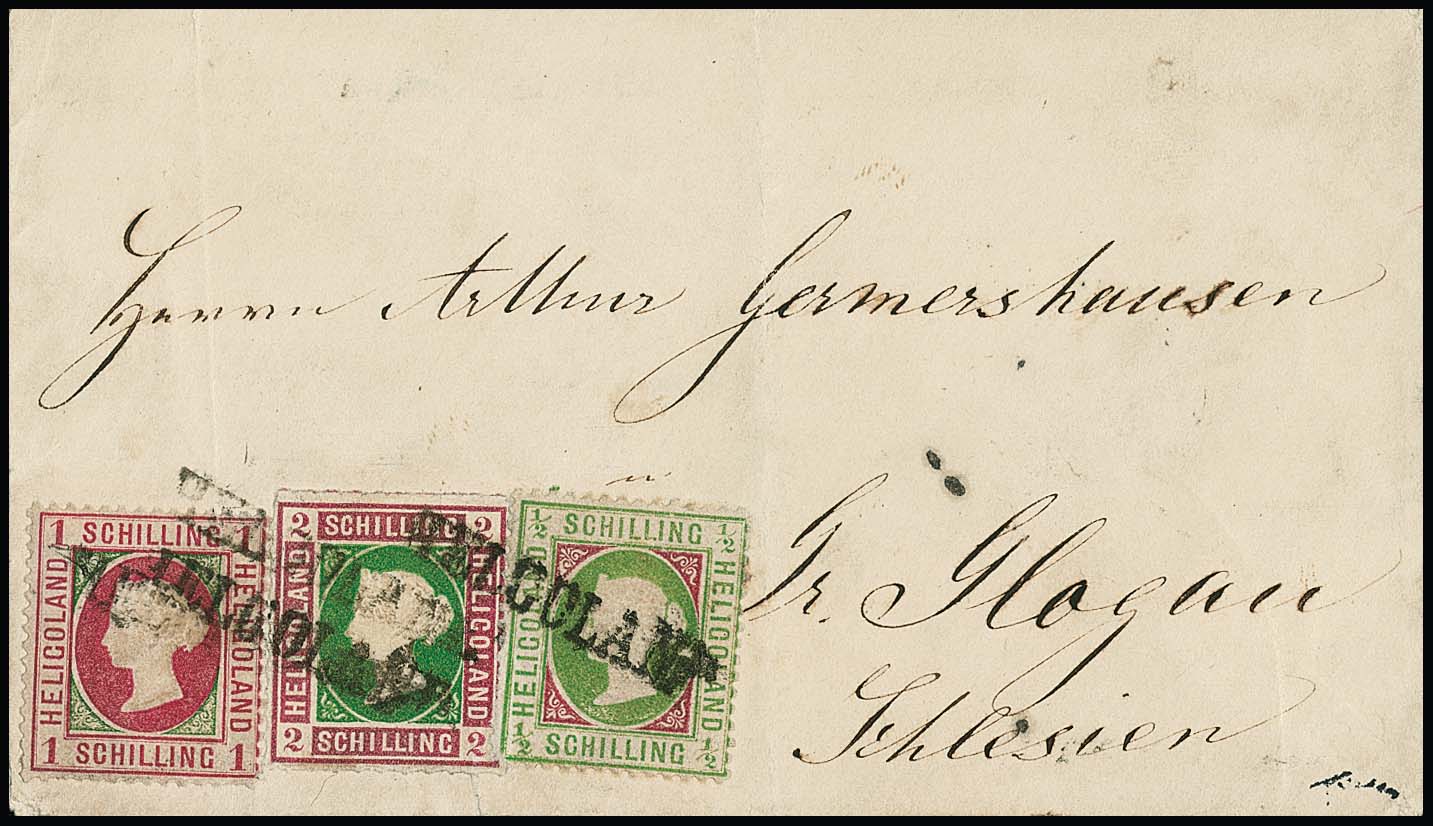 Herrn Arthur Germershausen
in
Gr. Glogau
Schlesien
1 SCHILLING 1
HELIGOLAND
HELIGOLAND
1 SCHILLING 1
2 SCHILLING 2
HELIGOLAND
HELIGOLAND
2 SCHILLING 2
½ SCHILLING ½
HELIGOLAND
HELIGOLAND
½ SCHILLING ½
HELIGOLAND
HELIGOLAND
HELIGOLAND